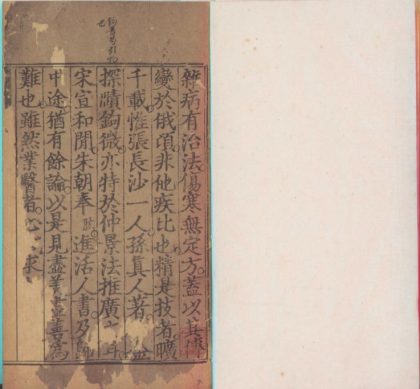 雜病有治法傷寒無定方蓋以其
變於俄頃非他疾比也精是技者曠
千載惟張長沙一人孫真人著
探賾鉤微亦特於仲景法推廣之耳
宋宣和間朱朝奉肱進活人書乃
中途猶有餘論以是見盡善盡美為
難也雖然業醫者心求